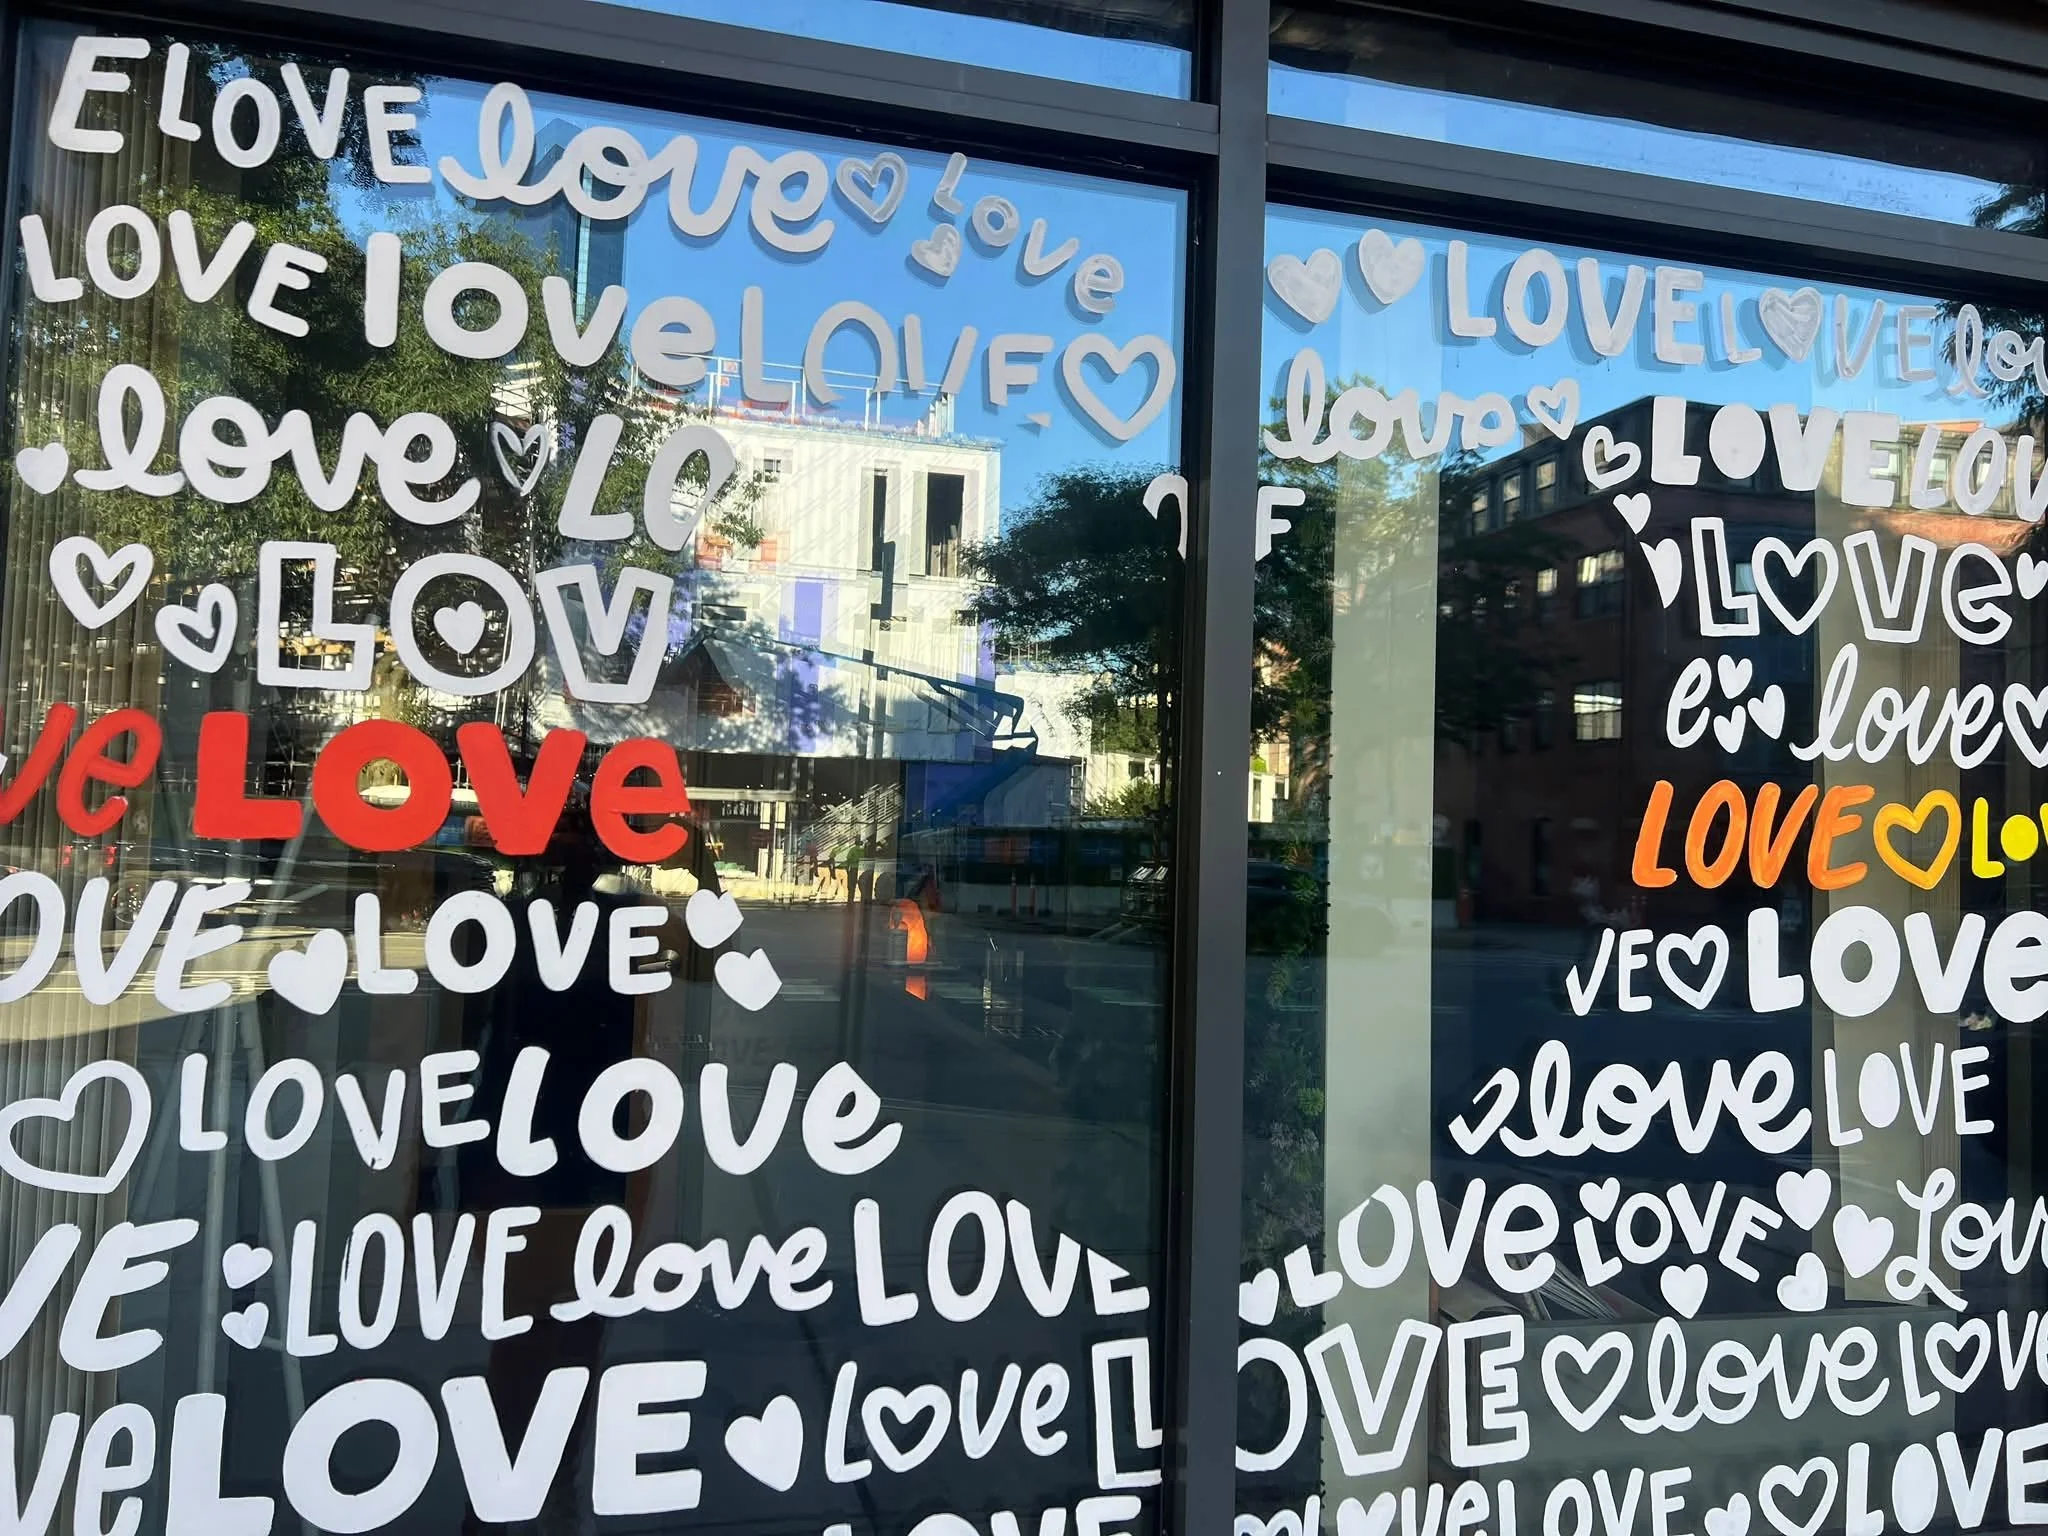 E LOVE love LOVE
LOVE love LOVE
love LO
LOV
ve LOVE
OVE LOVE
LOVE LOVE
VE LOVE love LOVE
ve LOVE LOVE L
LOVE
LOVE LOVE lo
love LOVE LOV
E
LOVE
e love
LOVE LO
VE LOVE
love LOVE
LOVE LOVE Lov
OVE love LOVE
LOVE LOVE LOVE